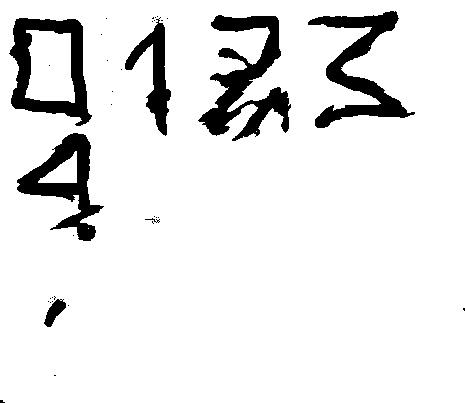 0123
4